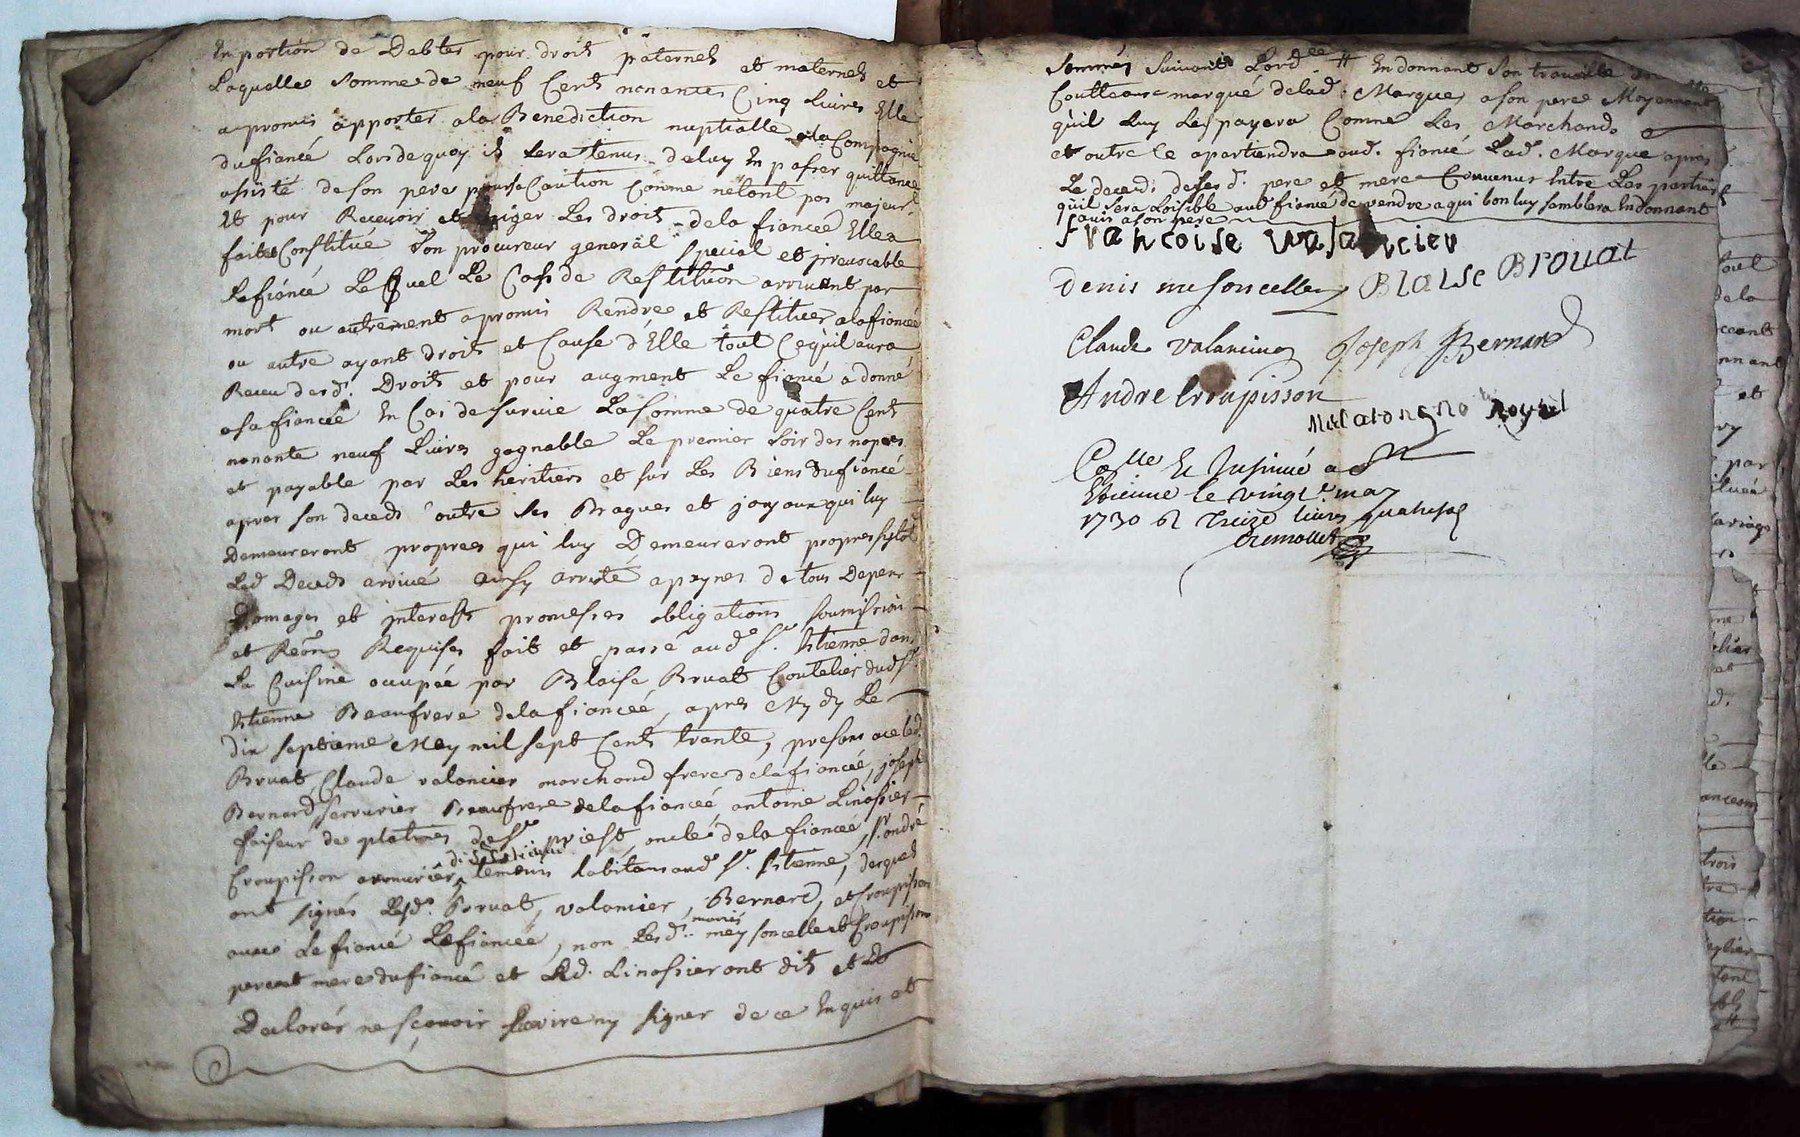 En portion de Debtes pour droits paternels et maternels et
Laquelle somme de neuf Cents nonantes Cinq Livres Elle
a promis apporter a la Benediction nuptialle a la Compagnie
du fiancé Lors de quoy il sera tenus de luy En passer quittance
assisté de son pere pour sa Caution Comme n'etant pas majeur
Et pour Recevoir et Exiger Les droits de la fiancée Elle a
fait et Constitué son procureur general special et irrevocable
Le fiancé Lequel Le Cass de Restitution arrivant par
mort ou autrement a promis Rendre et Restituer a la fiancée
ou autre ayant droits et Cause d'Elle tout Ce qu'il aura
Receu desd. Droits et pour augment Le fiancé a donné
a sa fiancée En Cas de survie La somme de quatre Cents
nonante neuf Livres gagnable Le premier soir des nopces
et payable par Les heritiers et sur Les Biens du fiancé
apres son deceds outre ses Bragues et joyaux qui luy
Demeureront propres qui luy Demeureront propres sytot
Led Deceds arrivé ainsy arreté a peynes de tous Depens
Domages et interests promesses obligations soumission
et Reōns Requises fait et passé aud. St. Etienne dans
La Cuisine occupée par Blaise Bruat Coutelier dud St
Etienne Beaufrere de la fiancée, apres Mydy Le
dix septieme Mey mil sept Cents trante, presens ace led.
Bruat, Claude valancier marchand frere de la fiancée, joseph
Bernard serrurier Beaufrere de la fiancée antoine Linossier
faiseur de platines de St. priest, oncle de la fiancée, Sr. andré
Croupisson armurier temoins habitans aud. St. Etienne, desquels
ont signés Lesd. Bruat, valancier, Bernard, et Croupisson
avec Le fiancé La fiancée, non Lesd. mariés mey soncelle et Croupisson
pere et mere du fiancé et Led. Linossier ont dit et
Declarés ne sçavoir Ecrire ny signer de ce Enquis et
sommés suivant L'ord.ce # En donnant son travaille
Coutteaux marque de lad. Marque a son pere Moyennant
qu'il Luy Les payera Comme Les Marchands
et outre ce apartiendra aud. fiancé Lad. Marque apres
Le deceds de sesd. pere et mere Convenus Entre Les parties
qu'il sera Loisible aud fiancé de vendre a qui bon luy samblera En donnant
l'avis a son pere
francoise valancier
denis mesoncelle Blaise Brouat
Claude valancier Joseph Bernard
Andre Croupisson
Royet
Con.lle Et Insinué a St
Etienne le vingt.e may
1730 Treize livres quatre sols